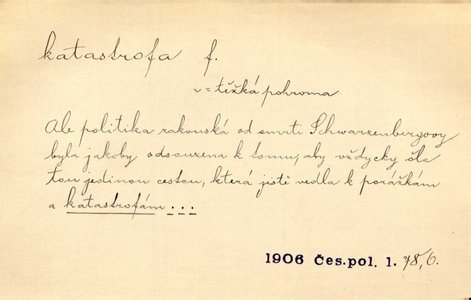 katastrofa f.
v = těžká pohroma
Ale politika rakouská od smrti Schwarzenbergovy
byla jakoby odsouzena k tomu, aby vždycky šla
tou jedinou cestou, která jistě vedla k porážkám
a katastrofám ...
1906 Čes.pol. 1. 78,6.